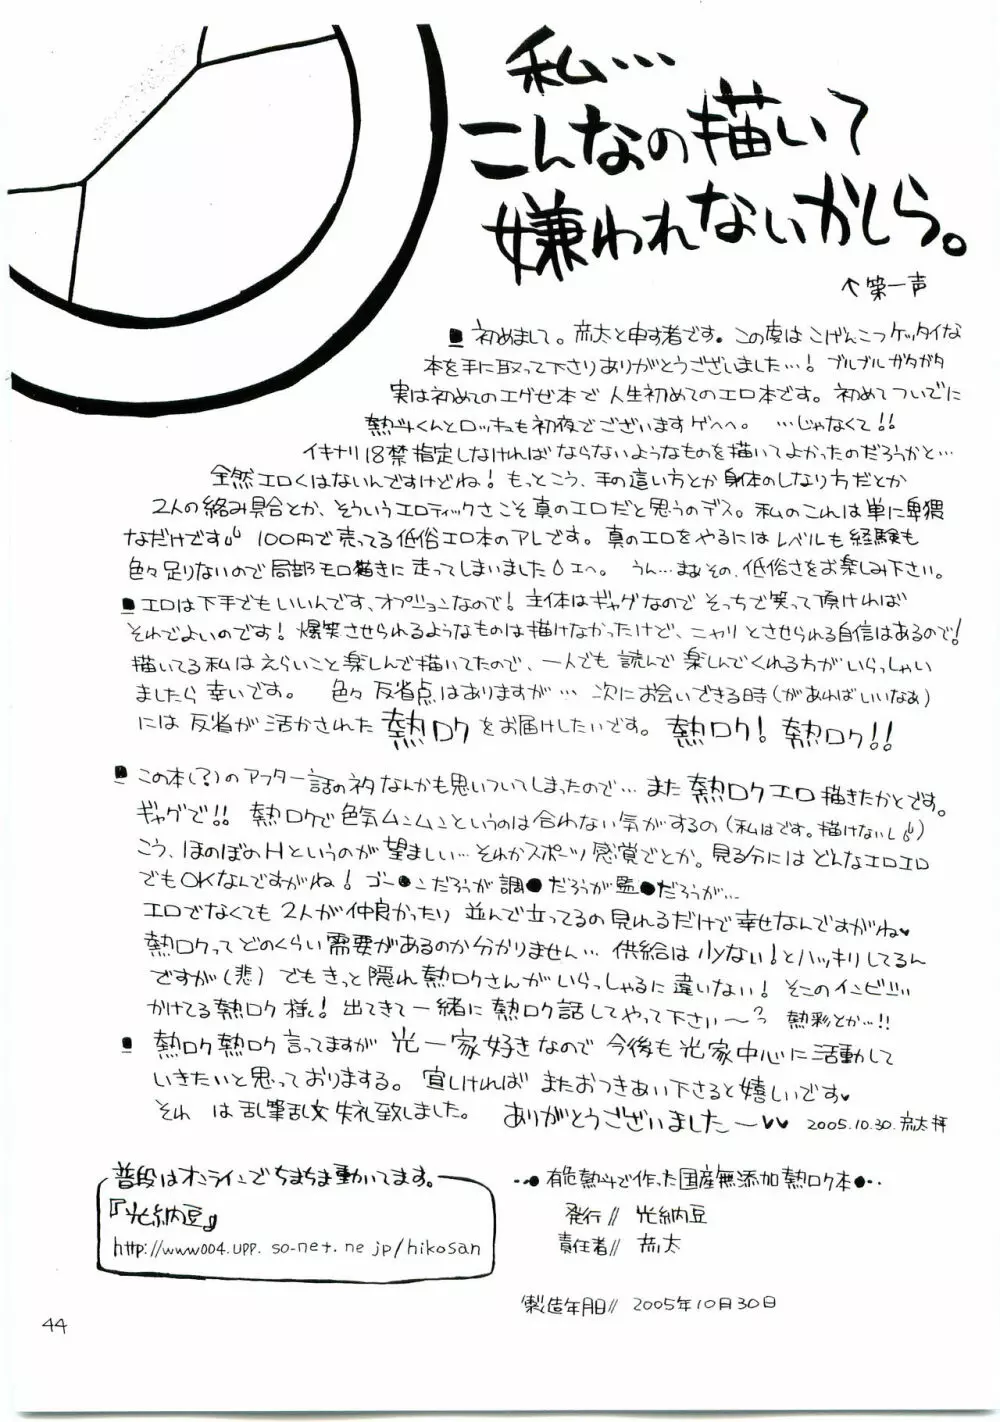 私…
こんなの描いて
嫌われないかしら。
↑第一声
■ 初めまして。彦太と申す者です。この度はこげんこつケッタイな
本を手に取って下さりありがとうございました…! ブルブルガタガタ
実は初めてのエグゼ本で人生初めてのエロ本です。初めてついでに
熱斗くんとロックも初夜でございますゲヘヘ。…じゃなくて!!
イキナリ18禁指定しなければならないようなものを描いてよかったのだろうかと…
全然エロくはないんですけどね! もっとこう、手の這い方とか身体のしなり方だとか
2人の絡み具合とか、そういうエロティックさこそ真のエロだと思うのデス。私のこれは単に卑猥
なだけです 100円で売ってる低俗エロ本のアレです。真のエロをやるにはレベルも経験も
色々足りないので局部モロ描きに走ってしまいました エヘ。 うん…まぁその、低俗さをお楽しみ下さい。
■ エロは下手でもいいんです、オプションなので! 主体はギャグなのでそっちで笑って頂ければ
それでよいのです! 爆笑させられるようなものは描けなかったけど、ニヤリとさせられる自信はあるので!
描いてる私はえらいこと楽しんで描いてたので、一人でも読んで楽しんでくれる方がいらっしゃい
ましたら幸いです。 色々反省点はありますが… 次にお会いできる時(があればいいなぁ)
には反省が活かされた熱ロクをお届けしたいです。 熱ロク! 熱ロク!!
■ この本(?)のアフター話のネタなんかも思いついてしまったので…また熱ロクエロ描きたかとです。
ギャグで!! 熱ロクで色気ムンムンというのは合わない気がするの(私はです。描けないし)
こう、ほのぼのHというのが望ましい…それかスポーツ感覚でとか。見る分にはどんなエロエロ
でもOKなんですがね! ゴー●ンだろうが調●だろうが監●だろうが…
エロでなくても2人が仲良かったり並んで立ってるの見れるだけで幸せなんですがね♥
熱ロクってどのくらい需要があるのか分かりません… 供給は少ない!とハッキリしてるん
ですが(悲) でもきっと隠れ熱ロクさんがいらっしゃるに違いない! そこのインビジ
かけてる熱ロク様! 出てきて一緒に熱ロク話してやって下さい〜? 熱彩とか…!!
■ 熱ロク熱ロク言ってますが光一家好きなので今後も光家中心に活動して
いきたいと思っておりまする。宜しければまたおつきあい下さると嬉しいです♥
それでは乱筆乱文失礼致しました。 ありがとうございました〜♥♥ 2005.10.30.彦太拝
普段はオンラインでちまちま動いてます。
『光納豆』
http://www004.upp.so-net.ne.jp/hikosan
--●有危熱斗で作った国産無添加熱ロク本●--
発行// 光納豆
責任者// 彦太
製造年月日// 2005年10月30日
44